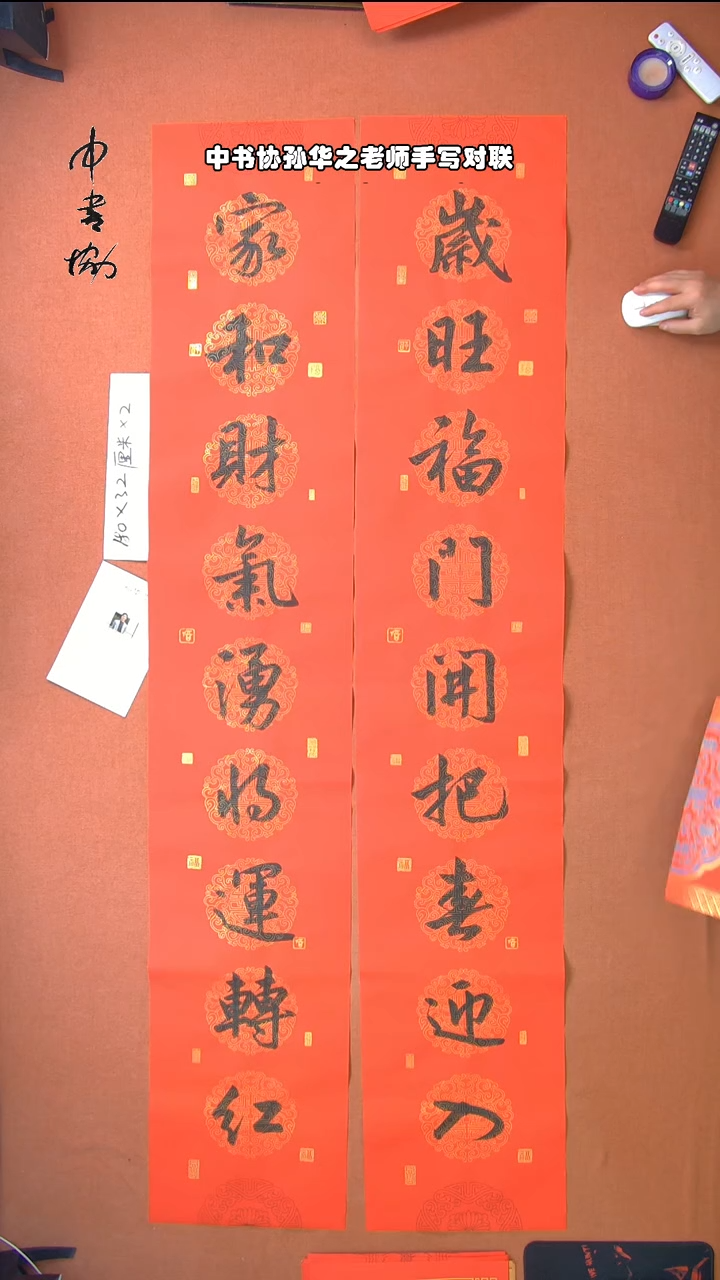 中书协孙华之老师手写对联
中书协
歲旺福門開把春迎入
家和財氣湧将運轉红
140×32厘米×2